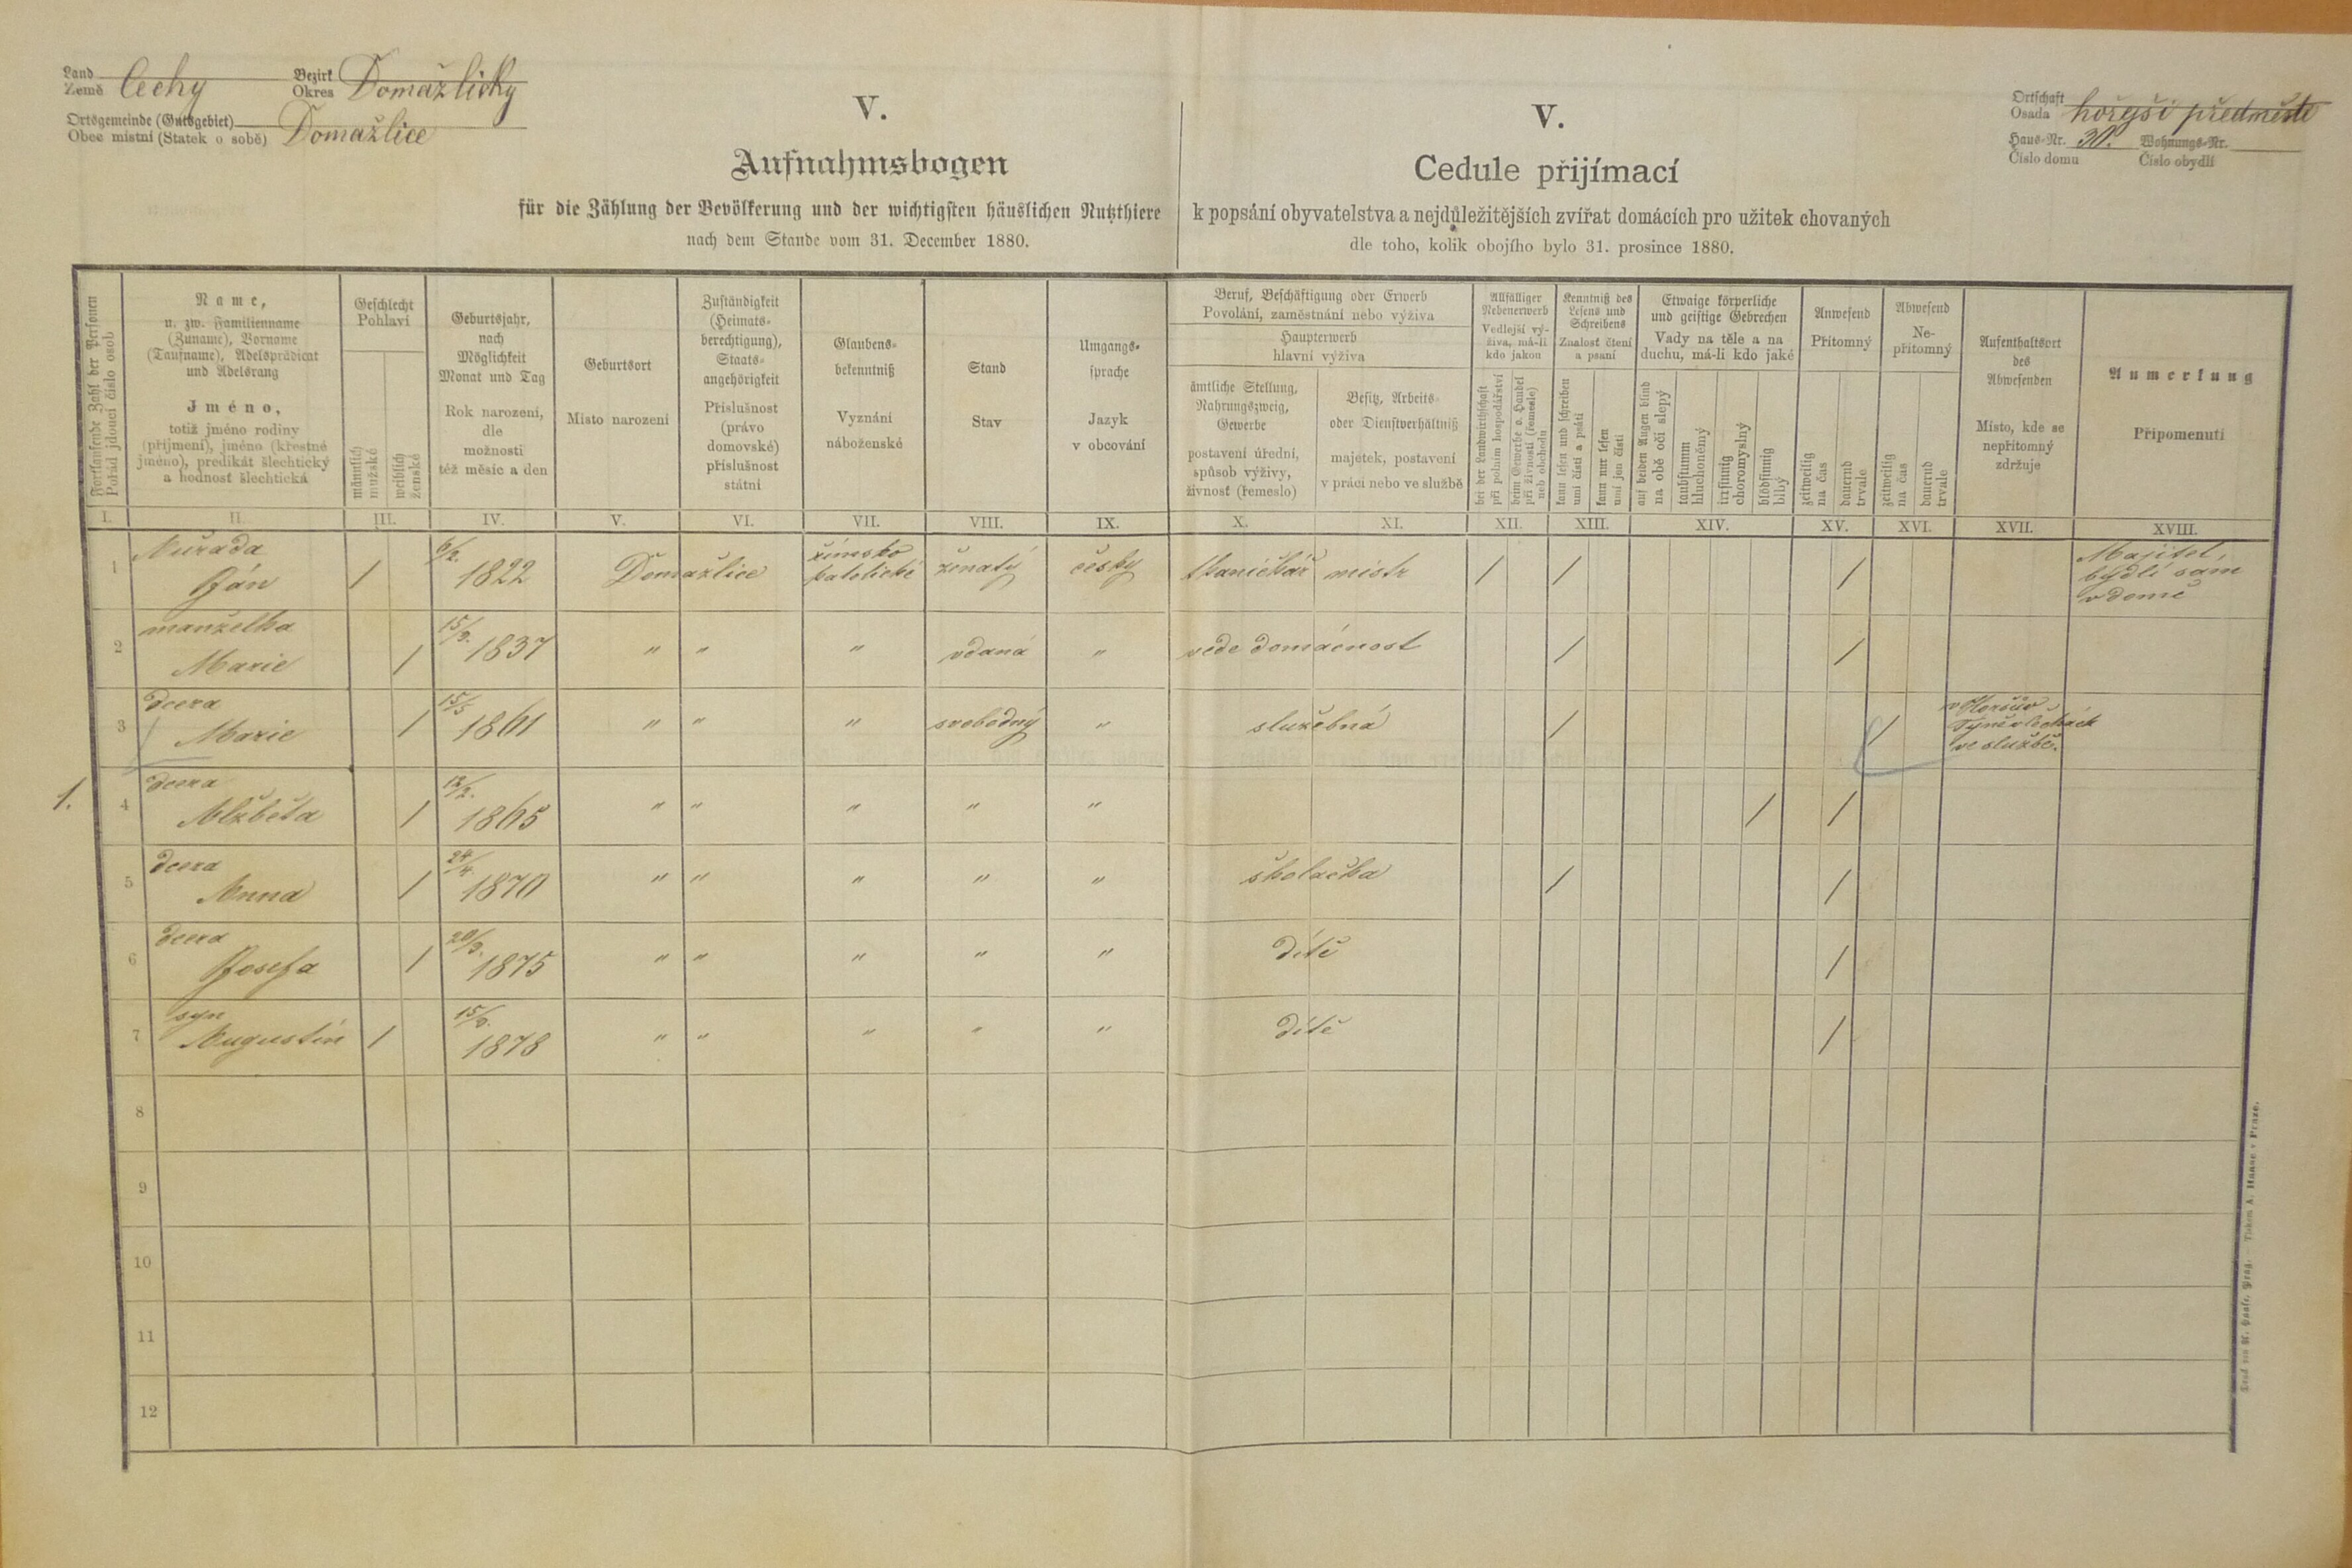 Land Země Čechy Bezirk Okres Domažlický
Ortsgemeinde (Gutsgebiet) Obec místní (Statek o sobě) Domažlice
Ortschaft Osada hořejší předměstí
Haus-Nr. Číslo domu 30. Wohnungs-Nr. Číslo obydlí
V.
Aufnahmsbogen
für die Zählung der Bevölkerung und der wichtigsten häuslichen Nutzthiere
nach dem Stande vom 31. December 1880.
V.
Cedule přijímací
k popsání obyvatelstva a nejdůležitějších zvířat domácích pro užitek chovaných
dle toho, kolik obojího bylo 31. prosince 1880.
Fortlaufende Zahl der Personen
Pořád jdoucí číslo osob
Name,
u. zw. Familienname
(Zuname), Vorname
(Taufname), Adelsprädicat
und Adelsrang
Jméno,
totiž jméno rodiny
(příjmení), jméno (křestné
jméno), predikát šlechtický
a hodnosť šlechtická
Geschlecht
Pohlaví
männlich
mužské
weiblich
ženské
Geburtsjahr,
nach
Möglichkeit
Monat und Tag
Rok narození,
dle
možnosti
též měsíc a den
Geburtsort
Místo narození
Zuständigkeit
(Heimats-
berechtigung),
Staats-
angehörigkeit
Příslušnost
(právo
domovské)
příslušnost
státní
Glaubens-
bekenntniß
Vyznání
náboženské
Stand
Stav
Umgangs-
sprache
Jazyk
v obcování
Beruf, Beschäftigung oder Erwerb
Povolání, zaměstnání nebo výživa
Haupterwerb
hlavní výživa
ämtliche Stellung,
Nahrungszweig,
Gewerbe
postavení úřední,
spůsob výživy,
živnosť (řemeslo)
Besitz, Arbeits-
oder Dienstverhältniß
majetek, postavení
v práci nebo ve službě
Allfälliger
Nebenerwerb
Vedlejší vý-
živa, má-li
kdo jakou
bei der Landwirthschaft
při polním hospodářství
beim Gewerbe o. Handel
při živnosti (řemesle)
neb obchodu
Kenntniß des
Lesens und
Schreibens
Znalosť čtení
a psaní
kann lesen und schreiben
umí čísti a psáti
kann nur lesen
umí jen čísti
Etwaige körperliche
und geistige Gebrechen
Vady na těle a na
duchu, má-li kdo jaké
auf beiden Augen blind
na obě oči slepý
taubstumm
hluchoněmý
irrsinnig
choromyslný
blödsinnig
blbý
Anwesend
Přítomný
zeitweilig
na čas
dauernd
trvale
Abwesend
Ne-
přítomný
zeitweilig
na čas
dauernd
trvale
Aufenthaltsort
des
Abwesenden
Místo, kde se
nepřítomný
zdržuje
Anmerkung
Připomenutí
I. II. III. IV. V. VI. VII. VIII. IX. X. XI. XII. XIII. XIV. XV. XVI. XVII. XVIII.
1 Kuřada Ján / 6/2. 1822 Domažlice římsko katolické ženatý český tkaničkář mistr / / / Majitel, bydlí sám v domě
2 manželka Marie / 15/9. 1837 " " " vdaná " vede domácnost / /
3 dcera Marie / 15/5 1861 " " " svobodný " služebná / / v Horšův Týně v Čechách ve službě.
1. 4 dcera Alžběta / 1865 " " " " " / /
5 dcera Anna / 24/4. 1870 " " " " " školačka / /
6 dcera Josefa / 20/3. 1875 " " " " " dítě /
7 syn Augustin / 1878 " " " " " dítě /
8
9
10
11
12
Druck von A. Haase, Prag. — Tiskem A. Haase v Praze.